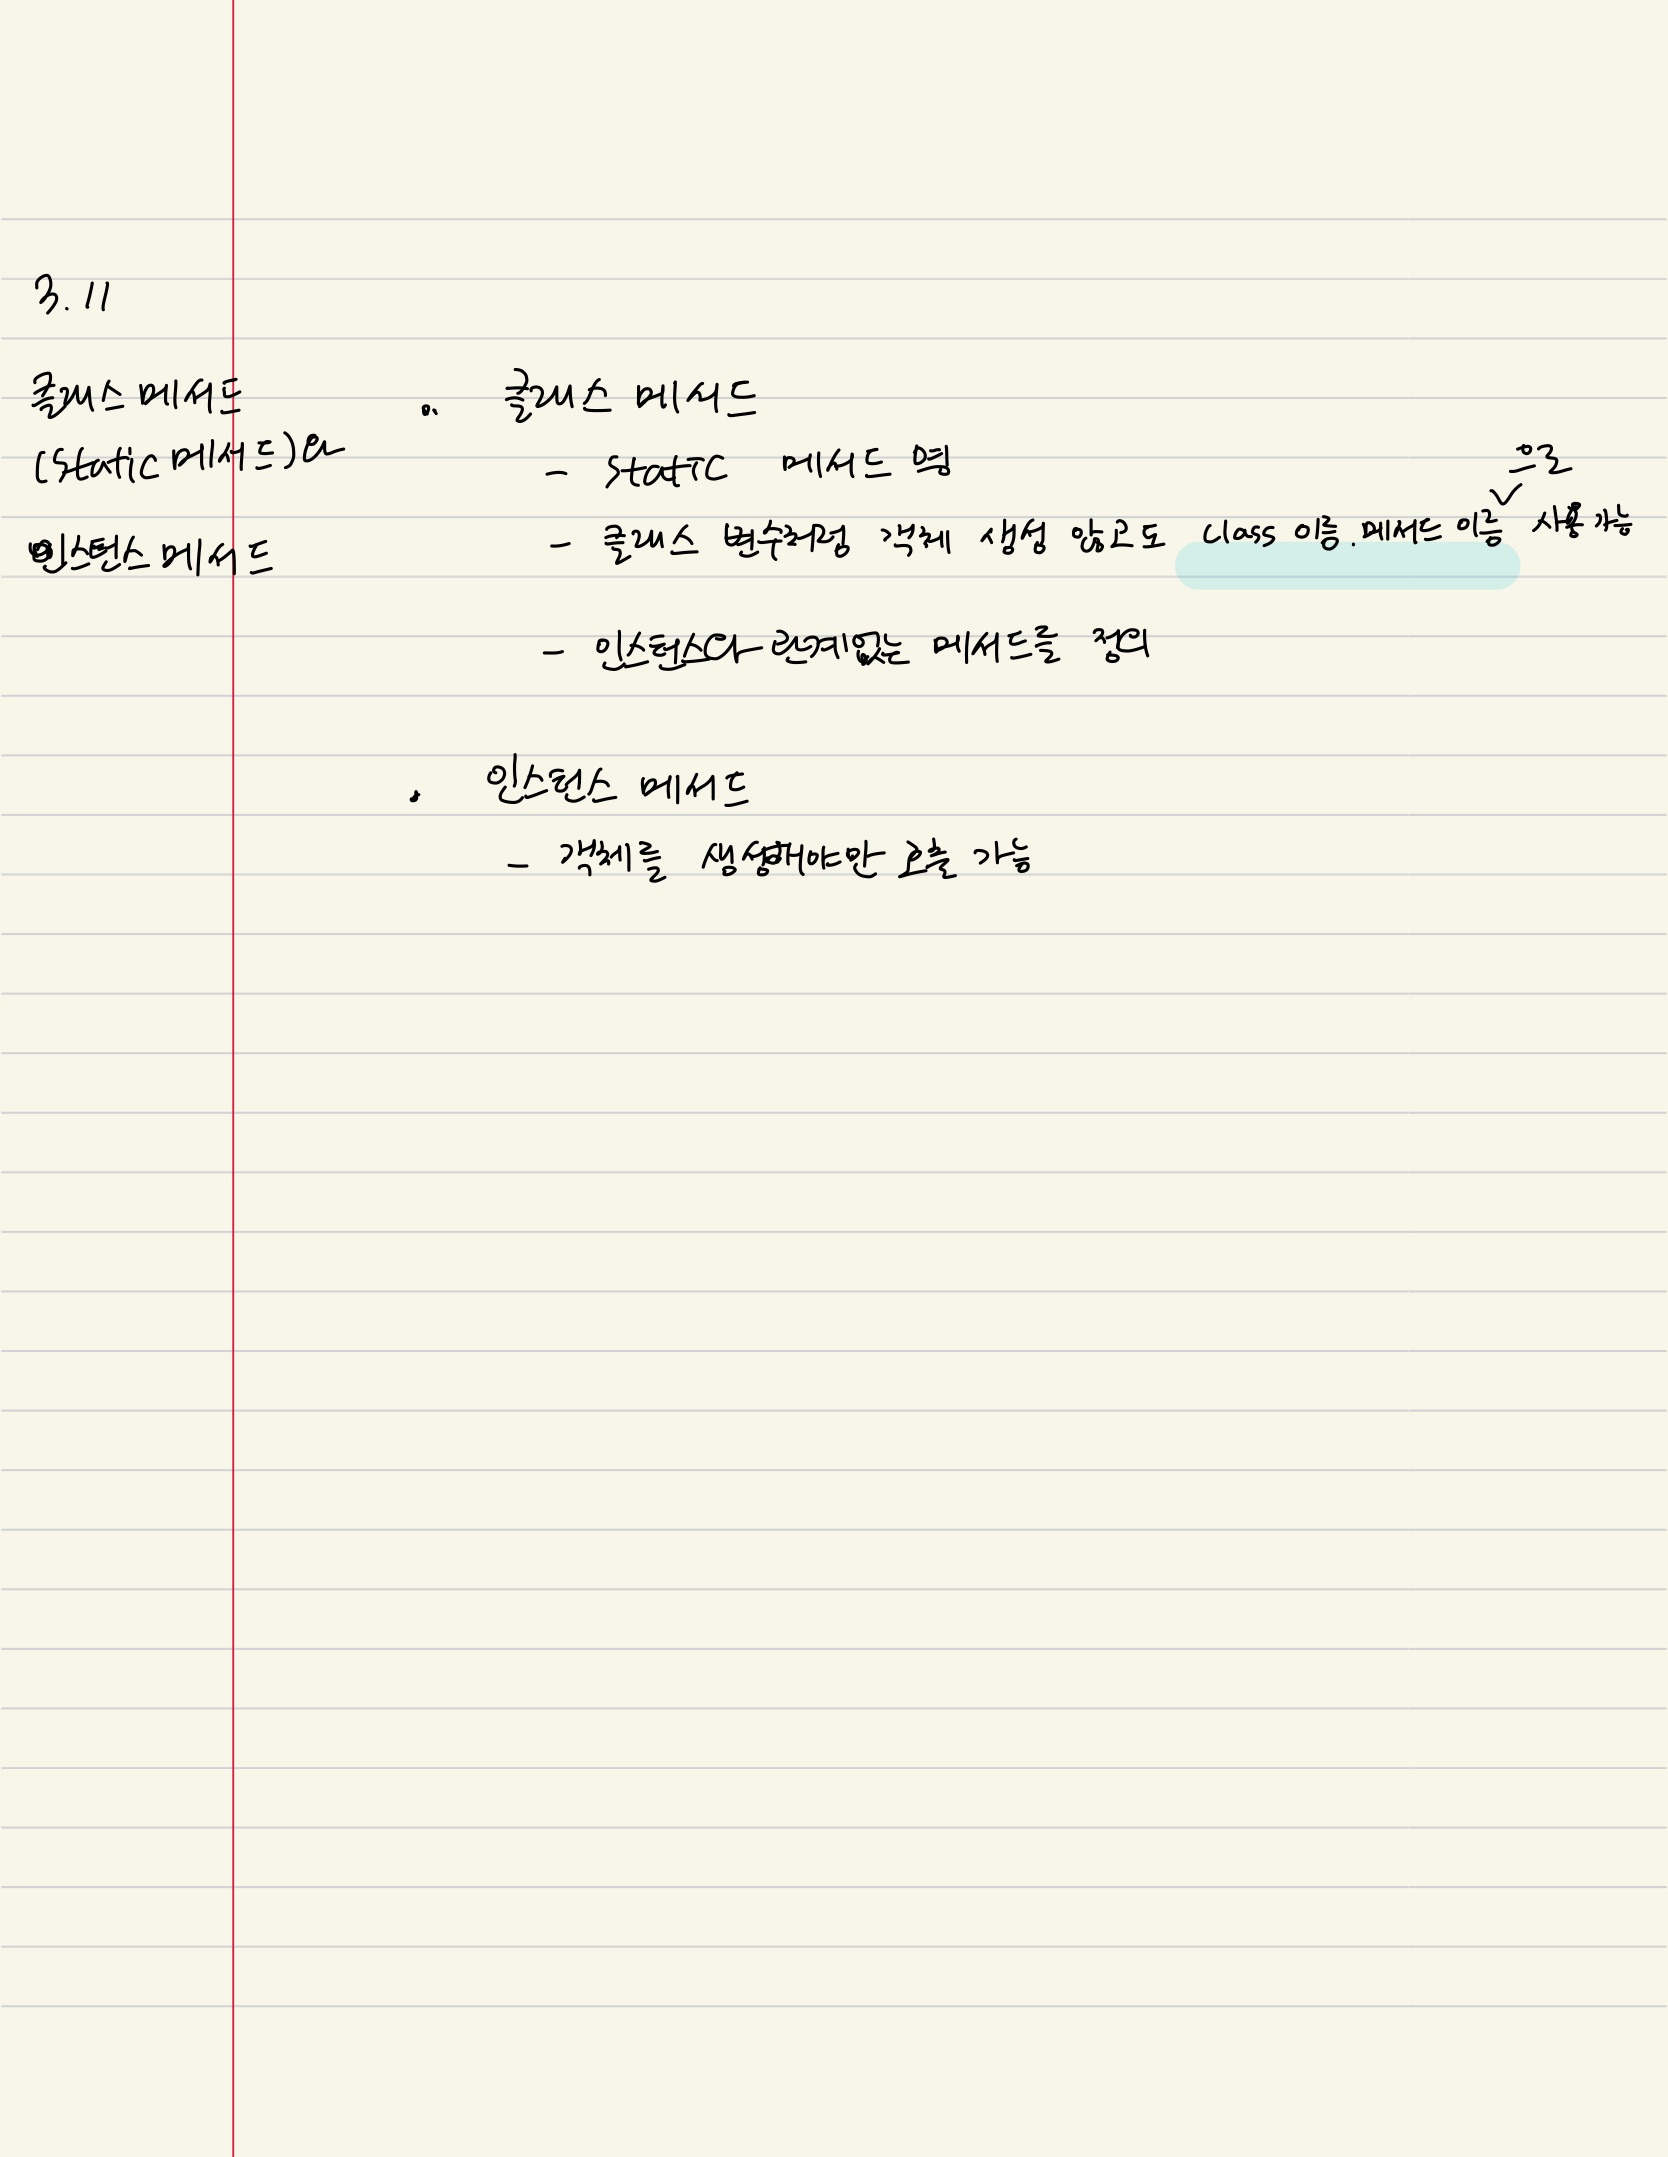 3.11
클래스 메서드
(static 메서드)와
인스턴스 메서드
• 클래스 메서드
- static 메서드 명
- 클래스 변수처럼 객체 생성 않고도 class 이름.메서드 이름으로 사용 가능
- 인스턴스와 관계없는 메서드를 정의
• 인스턴스 메서드
- 객체를 생성해야만 호출 가능